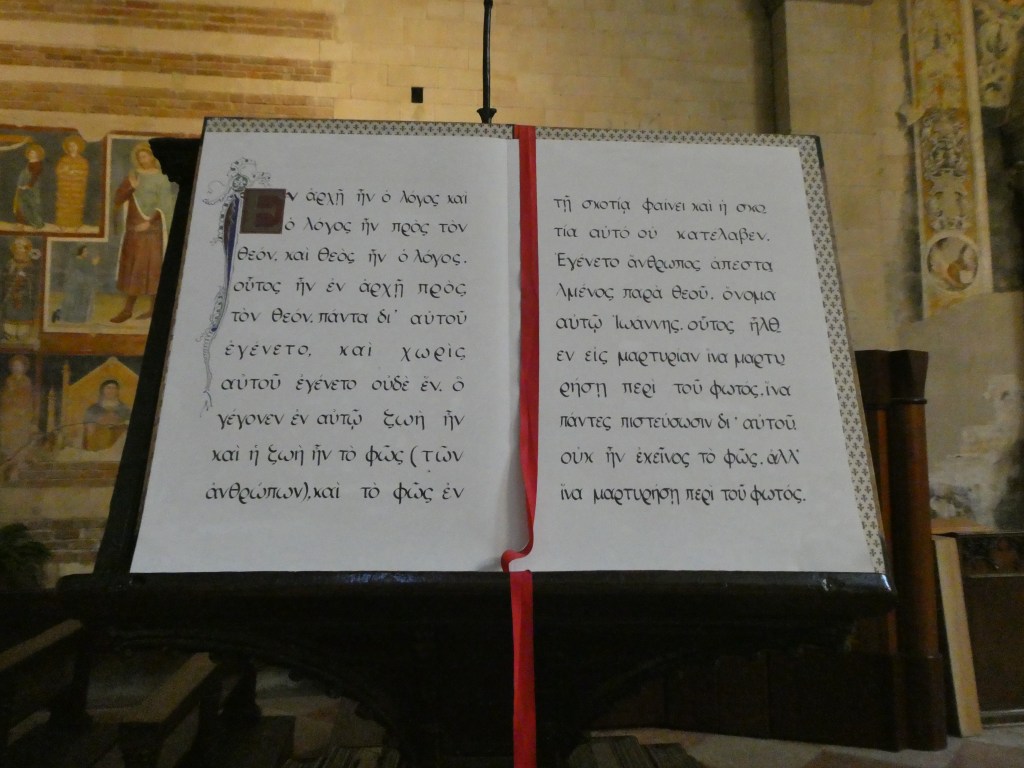 Ἐν ἀρχῇ ἦν ὁ λόγος καὶ
ὁ λόγος ἦν πρὸς τὸν
θεόν, καὶ θεὸς ἦν ὁ λόγος.
οὗτος ἦν ἐν ἀρχῇ πρὸς
τὸν θεόν. πάντα δι' αὐτοῦ
ἐγένετο, καὶ χωρὶς
αὐτοῦ ἐγένετο οὐδὲ ἕν. ὃ
γέγονεν ἐν αὐτῷ ζωὴ ἦν
καὶ ἡ ζωὴ ἦν τὸ φῶς (τῶν
ἀνθρώπων), καὶ τὸ φῶς ἐν
τῇ σκοτίᾳ φαίνει καὶ ἡ σκο
τία αὐτὸ οὐ κατέλαβεν.
Ἐγένετο ἄνθρωπος ἀπεστα
λμένος παρὰ θεοῦ. ὄνομα
αὐτῷ Ἰωάννης. οὗτος ἦλθ
εν εἰς μαρτυρίαν ἵνα μαρτυ
ρήσῃ περὶ τοῦ φωτός. ἵνα
πάντες πιστεύσωσιν δι' αὐτοῦ
οὐκ ἦν ἐκεῖνος τὸ φῶς. ἀλλ'
ἵνα μαρτυρήσῃ περὶ τοῦ φωτός.